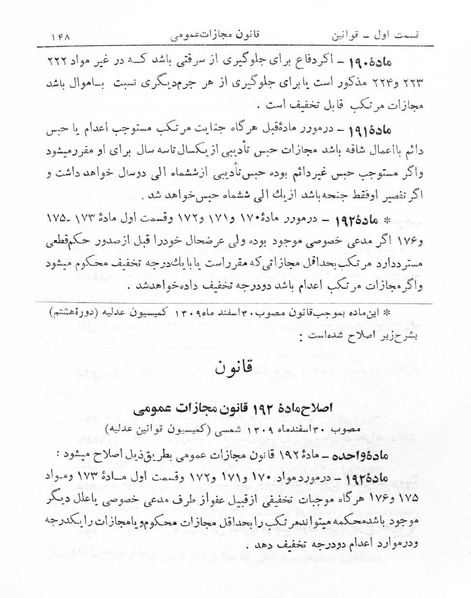 قسمت اول ــ قوانین قانون مجازات عمومی ۱۴۸
ماده ۱۹۰ ــ اگر دفاع برای جلوگیری از سرقتی باشد که در غیر مواد ۲۲۲
۲۲۳ و ۲۲۴ مذکور است یا برای جلوگیری از هر جرم دیگری نسبت باموال باشد
مجازات مرتکب قابل تخفیف است .
مادهٔ ۱۹۱ ــ در مورد مادهٔ قبل هر گاه جنایت مرتکب مستوجب اعدام یا حبس
دائم با اعمال شاقه باشد مجازات حبس تأدیبی از یکسال تا سه سال برای او مقرر میشود
و اگر مستوجب حبس غیر دائم بوده حبس تأدیبی از ششماه الی دو سال خواهد داشت و
اگر تقصیر او فقط جنحه باشد از یک الی ششماه حبس خواهد شد .
* مادهٔ ۱۹۲ ــ در مورد مادهٔ ۱۷۰ و ۱۷۱ و ۱۷۲ و قسمت اول مادهٔ ۱۷۳ ــ ۱۷۵
و ۱۷۶ اگر مدعی خصوصی موجود بوده ولی عرضحال خود را قبل از صدور حکم قطعی
مسترد دارد مرتکب بحداقل مجازاتی که مقرر است یا با یک درجه تخفیف محکوم میشود
و اگر مجازات مرتکب اعدام باشد دو درجه تخفیف داده خواهد شد .
* این ماده بموجب قانون مصوب ۳۰ اسفند ماه ۱۳۰۹ کمیسیون عدلیه (دورهٔ هشتم)
بشرح زیر اصلاح شده است :
قانون
اصلاح مادهٔ ۱۹۲ قانون مجازات عمومی
مصوب ۳۰ اسفند ماه ۱۳۰۹ شمسی (کمیسیون قوانین عدلیه)
مادهٔ واحده ــ مادهٔ ۱۹۲ قانون مجازات عمومی بطریق ذیل اصلاح میشود :
مادهٔ ۱۹۲ ــ در مورد مواد ۱۷۰ و ۱۷۱ و ۱۷۲ و قسمت اول مادهٔ ۱۷۳ و مواد
۱۷۵ و ۱۷۶ هر گاه موجبات تخفیفی از قبیل عفو از طرف مدعی خصوصی یا علل دیگر
موجود باشد محکمه میتواند مرتکب را بحداقل مجازات محکوم و یا مجازات را یکدرجه
و در موارد اعدام دو درجه تخفیف دهد .